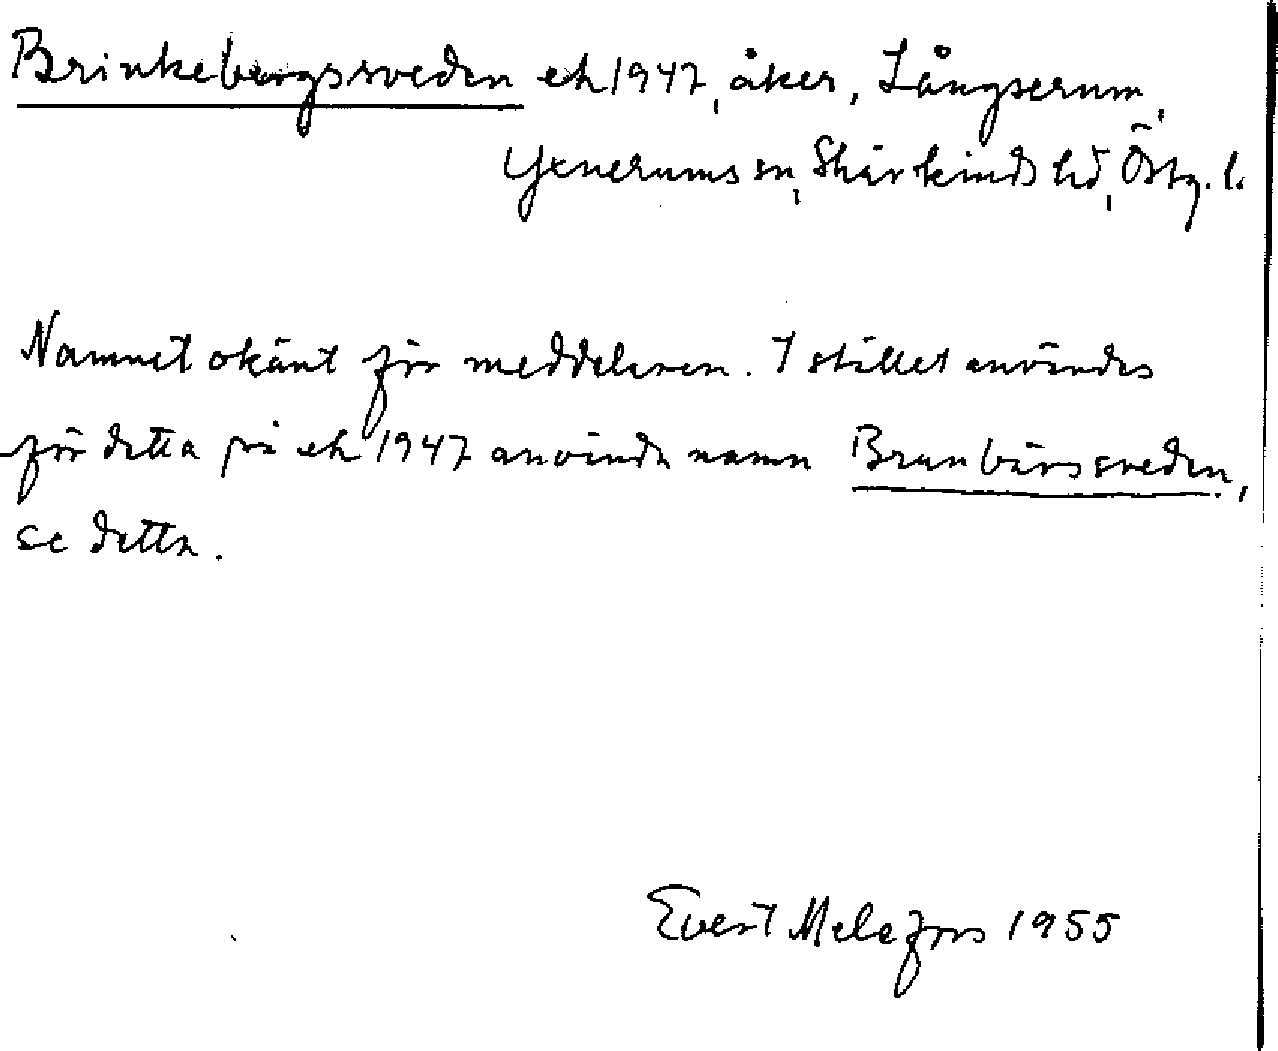 Brinkebergssveden ek 1947, åker, Långserum,
Yxnerums sn, Skärkinds hd, Östg. l.
Namnet okänt för meddelaren. I stället användes
för detta på ek 1947 använda namn Brunbärssveden,
se detta.
Evert Melefors 1955